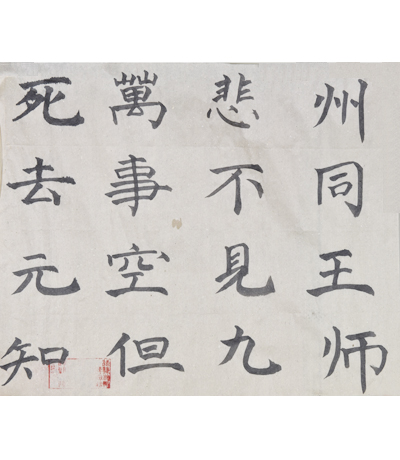 死去元知
萬事空但
悲不見九
州同王师